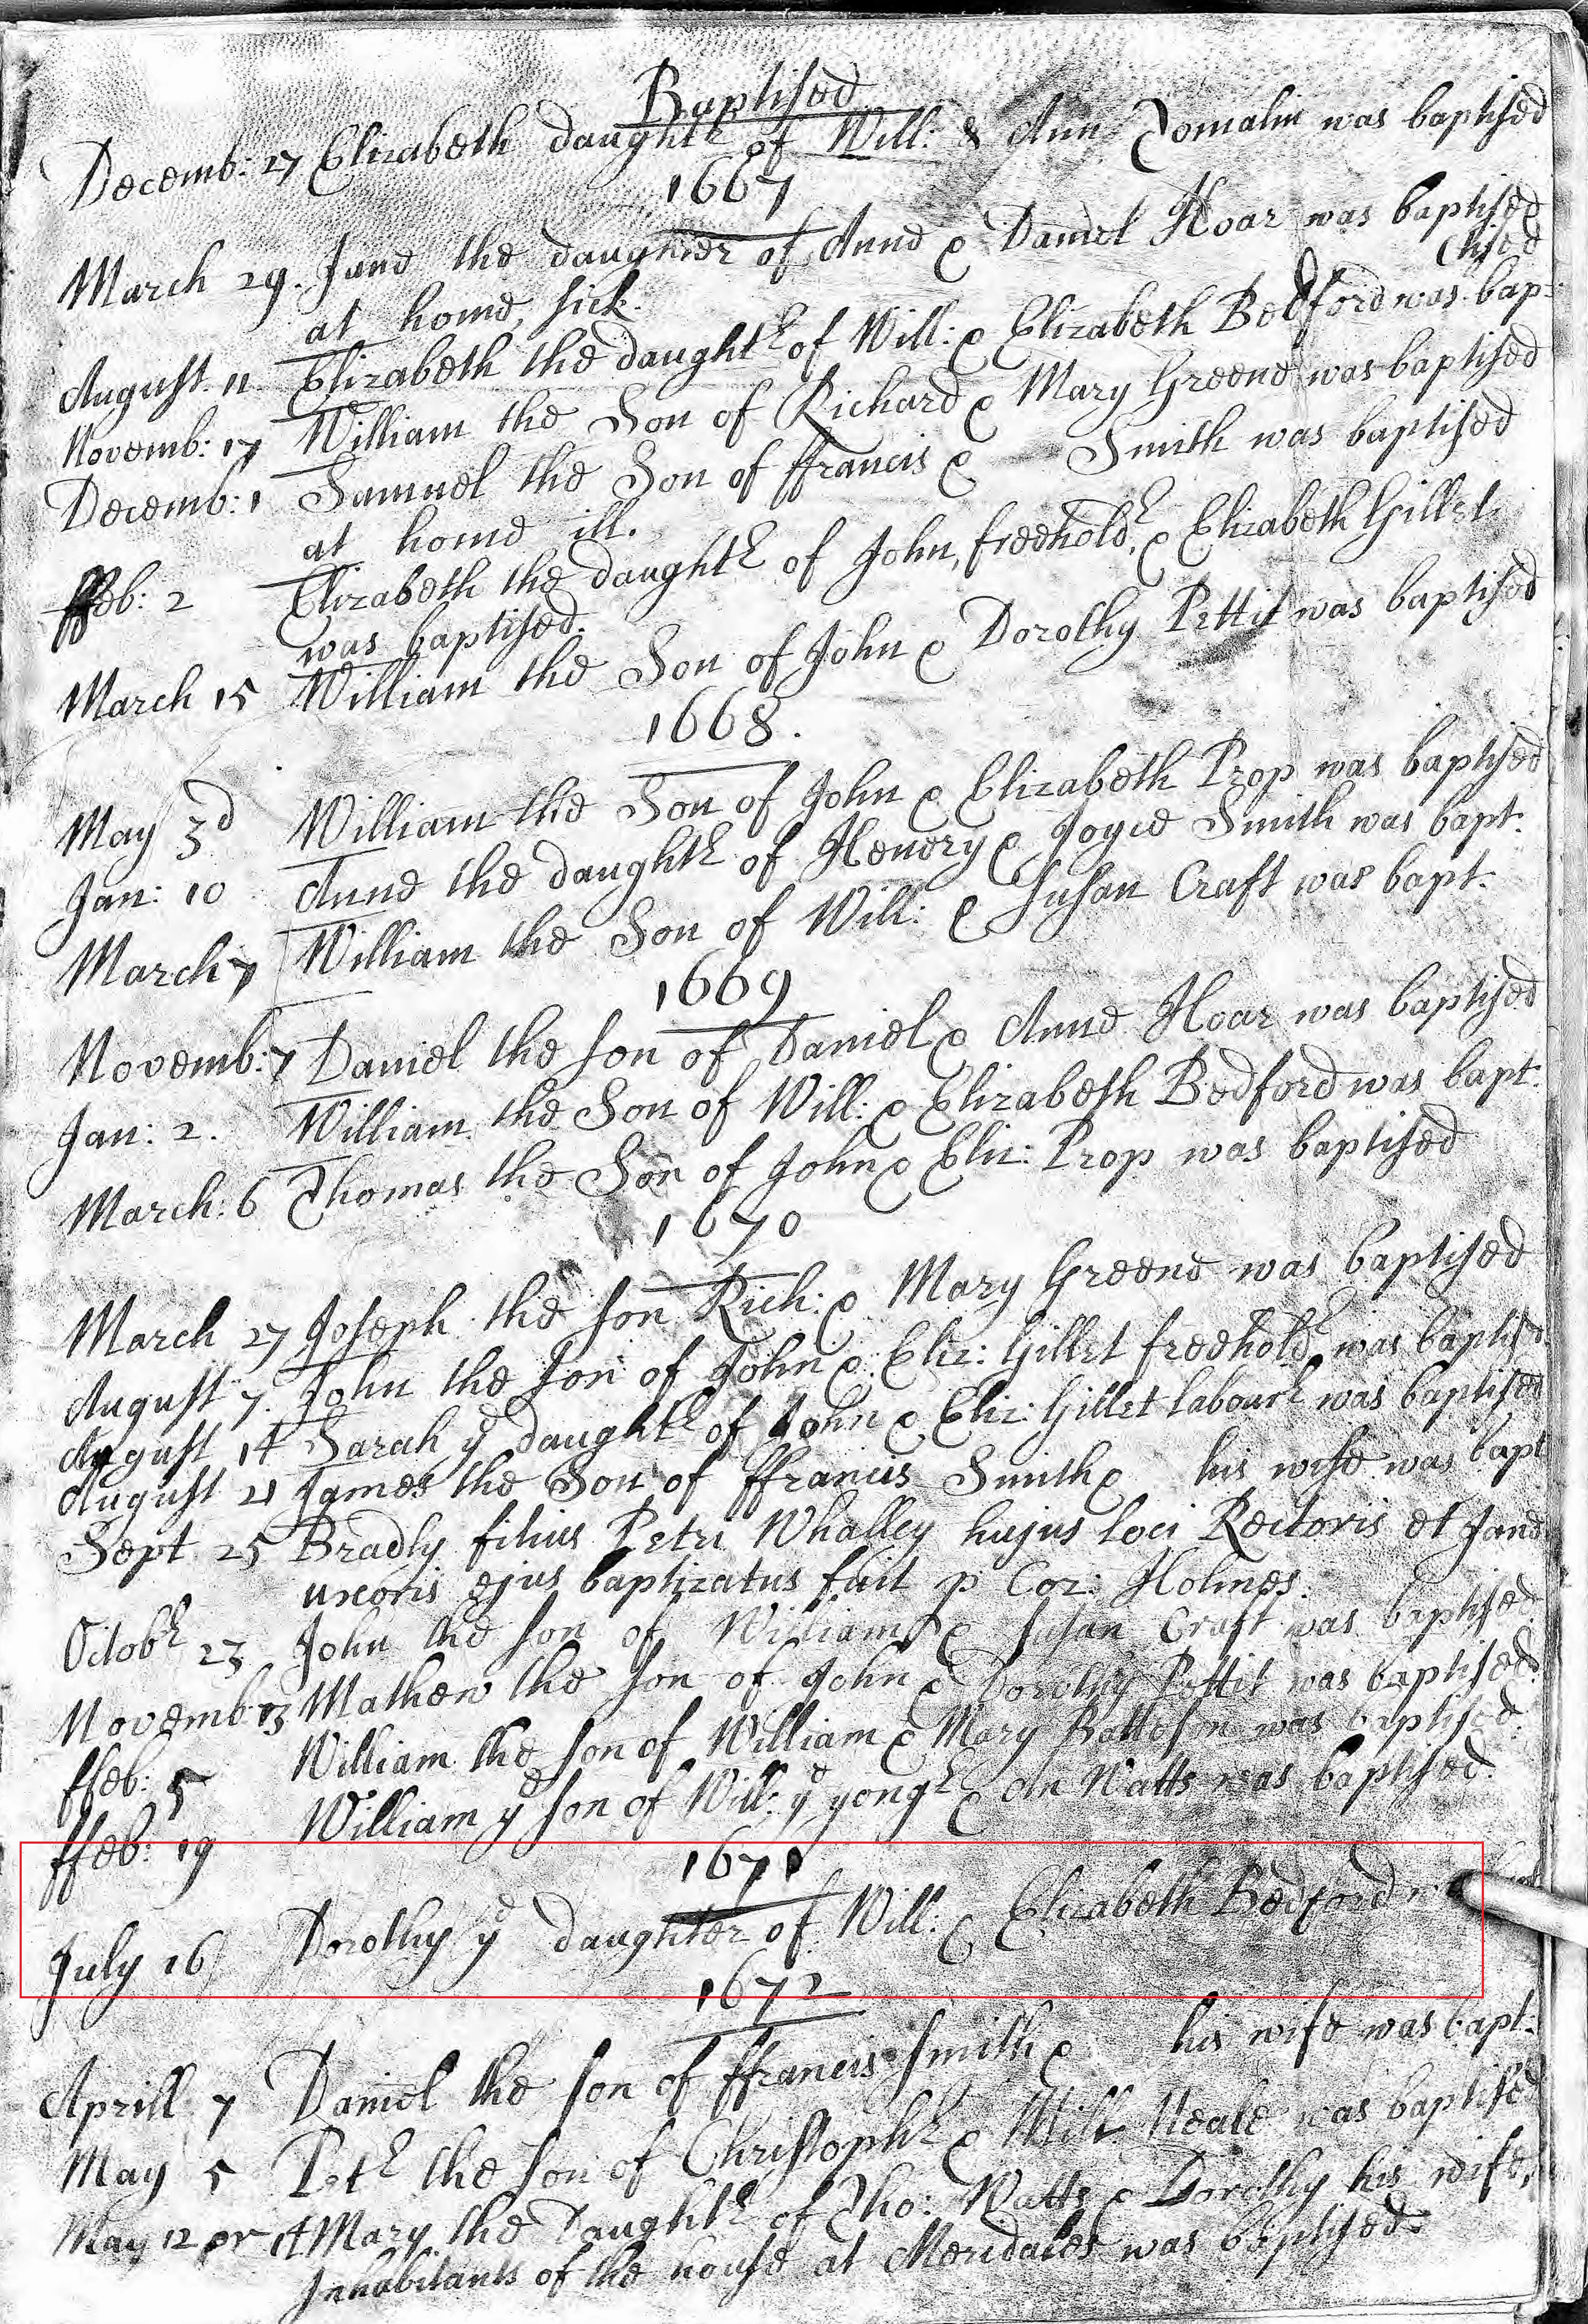 Baptised
Decemb: 27 Elizabeth daughtr of Will: & Ann Tomalin was baptised
1667
March 29. Jane the daughter of Anne & Daniel Hoar was baptised
at home, sick.
(tised
August 11 Elizabeth the daughtr of Will: & Elizabeth Bedford was bap=
Novemb: 17 William the Son of Richard & Mary Greene was baptised
Decemb: 1 Samuel the Son of ffrancis & Smith was baptised
at home ill.
ffeb: 2 Elizabeth the daughtr of John, freeholdr, & Elizabeth Gillet
was baptised.
March 15 William the Son of John & Dorothy Pettit was baptised
1668.
May 3d William the Son of John & Elizabeth Prop was baptised
Jan: 10 Anne the daughtr of Henery & Joyce Smith was bapt:
March 7 William the Son of Will: & Susan Craft was bapt:
1669
Novemb: 7 Daniel the son of Daniel & Anne Hoar was baptised
Jan: 2. William the Son of Will: & Elizabeth Bedford was bapt:
March: 6 Thomas the Son of John & Eliz: Prop was baptised
1670
March 27 Joseph the son Rich: & Mary Greene was baptised
August 7. John the son of John & Eliz: Gillet freeholdr was baptisd
August 14 Sarah ye daughtr of John & Eliz: Gillet labourr was baptised
August 21 James the Son of ffrancis Smith & his wife was bapt
Sept 25 Bradly filius Petri Whalley hujus loci Rectoris et Jane
uxoris ejus baptizatus fuit p Cor: Holmes.
Octobr 23 John the son of William & Susan Craft was baptised.
Novemb: 13 Mathew the son of John & Dorothy Pettit was baptised.
ffeb: 5 William the son of William & Mary Batteson was baptised.
ffeb: 19 William ye son of Will: ye yongr & An Watts was baptised.
1671
July 16 Dorothy ye daughter of Will: & Elizabeth Bedford
1672
Aprill 7 Daniel the son of ffrancis Smith & his wife was bapt:
May 5 Petr the son of Christophr & Neale was baptised
May 12 or 14 Mary the Daughtr of Tho: Watts & Dorothy his wife,
Inhabitants of the house at Meridales was baptised.